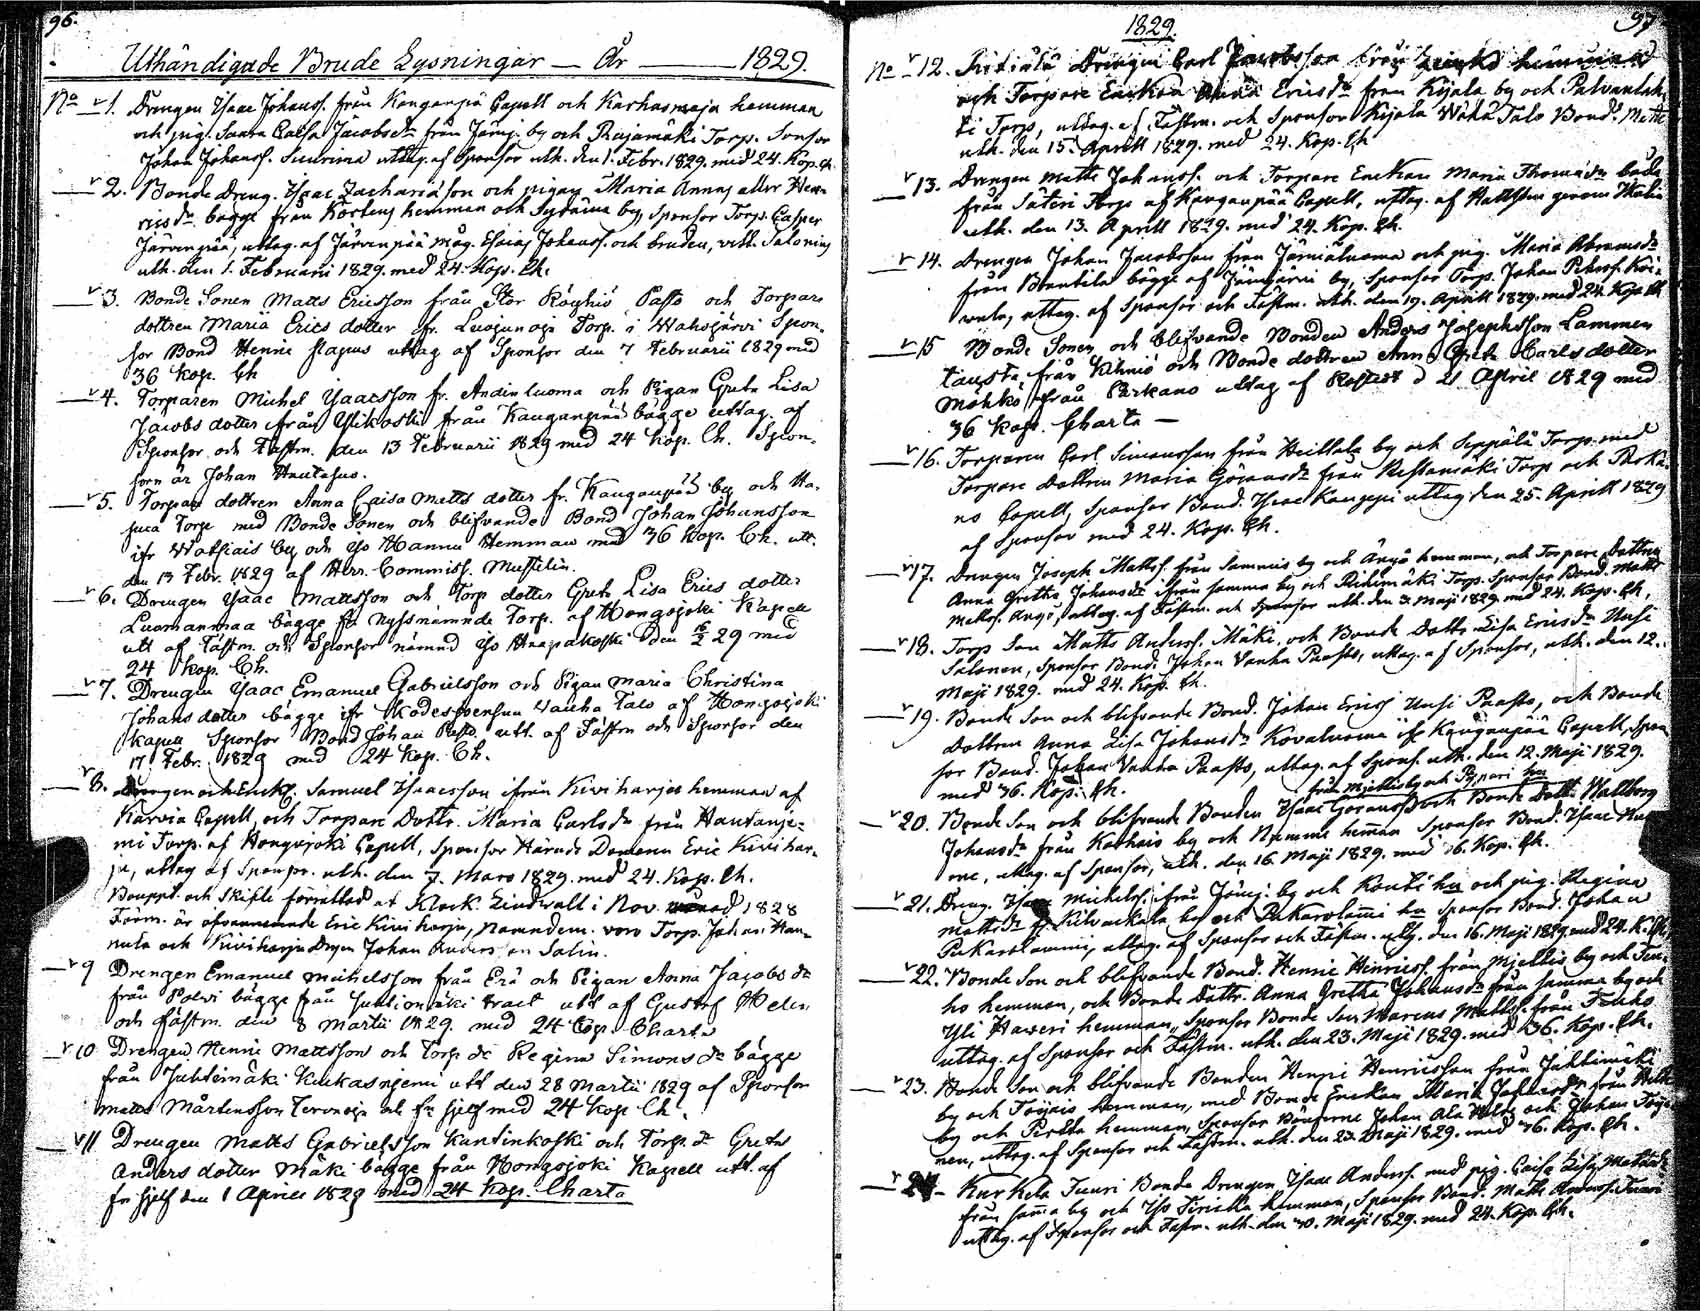 96.
Uthändigade Brude Lysningar — År — 1829.
No 1. Drengen Isaac Johanss. från Kanganpä Capell och Karhasmaja hemman
och pig. Saara Caisa Jacobsdr från Jämj. by och Rajamäki Torp. Sonsor
Johan Johanss. Suurima uttag. af Sponsor uth. den 1. Febr. 1829. med 24. Kop. Ch.
2. Bonde Dreng. Isaac Zachariæson och pigan Maria Annas eller Hen-
ricsdr bägge från Kösteus hemman och Syräina by, Sponsor Torp. Casper
Järvenpää, uttag. af Järvenpää måg. Esaias Johanss. och bruden, vitt. Salonius
uth. den 1. Februarii 1829. med 24. Kop. Ch.
3. Bonde Sonen Matts Ericsson från Stor Röyhiö Passo och Torpare
dottren Maria Erics dotter fr. Luojunoja Torp. i Wahojärvi Spon-
sor Bond Henric uttag af Sponsor den 7 Februarii 1829 med
36 kop. Ch
4. Torparen Michel Isaacsson fr. Andinluoma och Pigan Greta Lisa
Jacobs dotter från Ylikoski från Kauganpää bägge uttag. af
Sponsor och Fästm. den 13 Februarii 1829 med 24 kop. Ch. Spon-
sorn är Johan Hautasus.
5. Torpare dottren Anna Caisa Matts dotter fr. Kauganpää by och Ha-
juca Torp med Bonde Sonen och blifvande Bond Johan Johansson
ifr Watsiais by och Iso Hannu Hemman med 36 kop. Ch. utt.
den 13 Febr. 1829 af Herr. Commiss. Mustelin.
6. Drengen Isaac Mattsson och Torp dotter Greta Lisa Erics dotter
Luomanmaa bägge fr Nyssnämnde Torp. af Hongojoki Kapell
utt af Fästm. och Sponsor nämnd Iso Haapakoski den 16/2 29 med
24 kop. Ch.
7. Drengen Isaac Emanuel Gabrielsson och Pigan Maria Christina
Johans dotter bägge ifr Kodesjoensuu Wanha Talo af Hongojoki
kapell Sponsor Bond Johan Passo utt. af Fästm och Sponsor den
17 Febr. 1829 med 24 kop. Ch.
8. Drengen och Enckl. Samuel Isaacsson ifrån Kiviharjas hemman af
Karvia Capell, och Torpare Dottr. Maria Carlsdr från Hautanie-
mi Torp. af Hongojoki Capell, Sponsor Härads Domaren Eric Kivihar-
ju, uttag af Sponsor. uth. den 7. Mars 1829. med 24. Kop. Ch.
Boupptn och Skifte förrättad at Klock. Lindwall i Nov. månad 1828
Förm. är ofvannämnde Eric Kiviharju, Nämndem. voro Torp. Johan Han-
nula och Kiviharju Drgen Johan Andersson Salin.
9 Drengen Emanuel Michelsson från Erä och Pigan Anna Jacobs dr
från Polvi bägge från Juhtionmäki tract utt af Gustaf Helen
och Fästm. den 8 Martii 1829. med 24 Kop Charta
10 Drengen Henric Mattsson och Torp dr Regina Simons dr bägge
från Juhtimäki Kuckasniemi utt den 28 Martii 1829 af Sponsor
Matts Mårtensson Tervoja och fr sjelf med 24 kop Ch.
11 Drengen Matts Gabrielsson Kantinkoski och Torp. dr Greta
Anders dotter Mäki bägge från Hongojoki Kapell utt. af
fr sjelf den 1 Aprill 1829 med 24 kop. Charta
1829.
97
No 12. Drengen Carl Jacobsson från hemman
och Torpare Enckan Anna Ericsdr från Kyala by och Palvanlah-
ti Torp, uttag. af Fästm. och Sponsor Kyala Wähä Talo Bond. Matts
uth. den 15. Aprill 1829. med 24. Kop. Ch
13. Drengen Matts Johanss. och Torpare Enckan Maria Thomædr båda
från Säteri Torp af Kanganpää Capell, uttag. af Fästm genom
uth. den 13. Aprill 1829. med 24. Kop. Ch.
14. Drengen Johan Jacobsson från Jämiäluoma och pig. Maria Abramsdr
från Brantila bägge af Jämijärvi by, Sponsor Torp. Johan Peterss. Koi-
vula, uttag. af Sponsor och Fästm. uth. den 19. Aprill 1829. med 24. Kop Ch
15 Bonde Sonen och blifvande Bonden Anders Josephsson Lammen
tausta från Kihniö och Bonde dottren Anna Greta Carls dotter
Möhkö från Parkano uttag af d 21 April 1829 med
36 kop. Charta —
16. Torparen Carl Simonsson från Heittola by och Seppälä Torp. med
Torpare Dottren Maria Göransdr från Torp och Parka-
no Capell, Sponsor Bond. Isaac uttag den 25. Aprill 1829
af Sponsor med 24. Kop. Ch.
17. Drengen Joseph Mattss. från Sammis by och Änyö hemman, och Torpare Dottren
Anna Gretha Johansdr ifrån samma by och Riihimäki Torp. Sponsor Bond. Matts
Mattss. Änyö, uttag. af Fästm. och Sponsor uth. den 3. Maji 1829. med 24. Kop. Ch.
18. Torp. Son Matts Anderss. Mäki och Bonde Dottr. Lisa Ericsdr Uusi
Salonen, Sponsor Bond. Johan Vanha Paasto, uttag. af Sponsor, uth. den 12.
Maji 1829. med 24. Kop. Ch.
19. Bonde Son och blifvande Bond. Johan Erics Uusi Paasto, och Bonde
Dottren Anna Lisa Johansdr Kovaluoma ifr Kanganpää Capell, Spon
sor Bond. Johan Vanha Paasto, uttag. af Spons. uth. den 12. Maji 1829.
med 36. Kop. Ch.
från Mjellis by och Pypari hn
20. Bonde Son och blifvande Bonden Isaac Göransson och Bonde Dottr. Wallborg
Johansdr från Kathais by och Numme hemman Sponsor Bond. Isaac Num
me, uttag. af Sponsor, uth. den 16. Maji 1829. med 36. Kop. Ch.
21. Dreng. Isaac Michelss. ifrån Jämj. by och Kontti hn och pig. Regina
Mattsdr fr Kilvackala by och Pukarolammi hn Sponsor Bond. Johan
Pukarolammi, uttag. af Sponsor och Fästm. uth. den 16. Maji 1829. med 24. K. Ch.
22. Bonde Son och blifvande Bond. Henric Henricss. från Mjellis by och Teu-
ho hemman, och Bonde Dottr. Anna Gretha Johansdr från samma by och
Yli Haveri hemman, Sponsor Bonde Son Marcus Mattss. från Teuho
uttag. af Sponsor och Fästm. uth. den 23. Maji 1829. med 36. Kop. Ch.
23. Bonde Son och blifvande Bonden Henric Henricsson från Juhtimäki
by och Töyräis hemman, med Bonde Enckan Maria Johansdr från
by och Perttu hemman, Sponsor Bönderne Johan Ala och Johan Töyrä
nen, uttag. af Sponsor och Fästm. uth. den 23. Maji 1829. med 36. Kop. Ch.
24. Kurkela Tuuri Bonde Drengen Isaac Anderss. med pig. Caisa Lisa Mattsdr
från samma by och Iso Firickka hemman, Sponsor Bond. Matts Anderss. Tuuri
uttag. af Sponsor och Fästm. uth. den 30. Maji 1829. med 24. Kop. Ch.